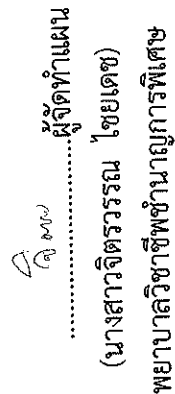 ........................................ผู้จัดทำแผน
(นางสาววิจิตรวรรณ ไชยเดช)
พยาบาลวิชาชีพชำนาญการพิเศษ